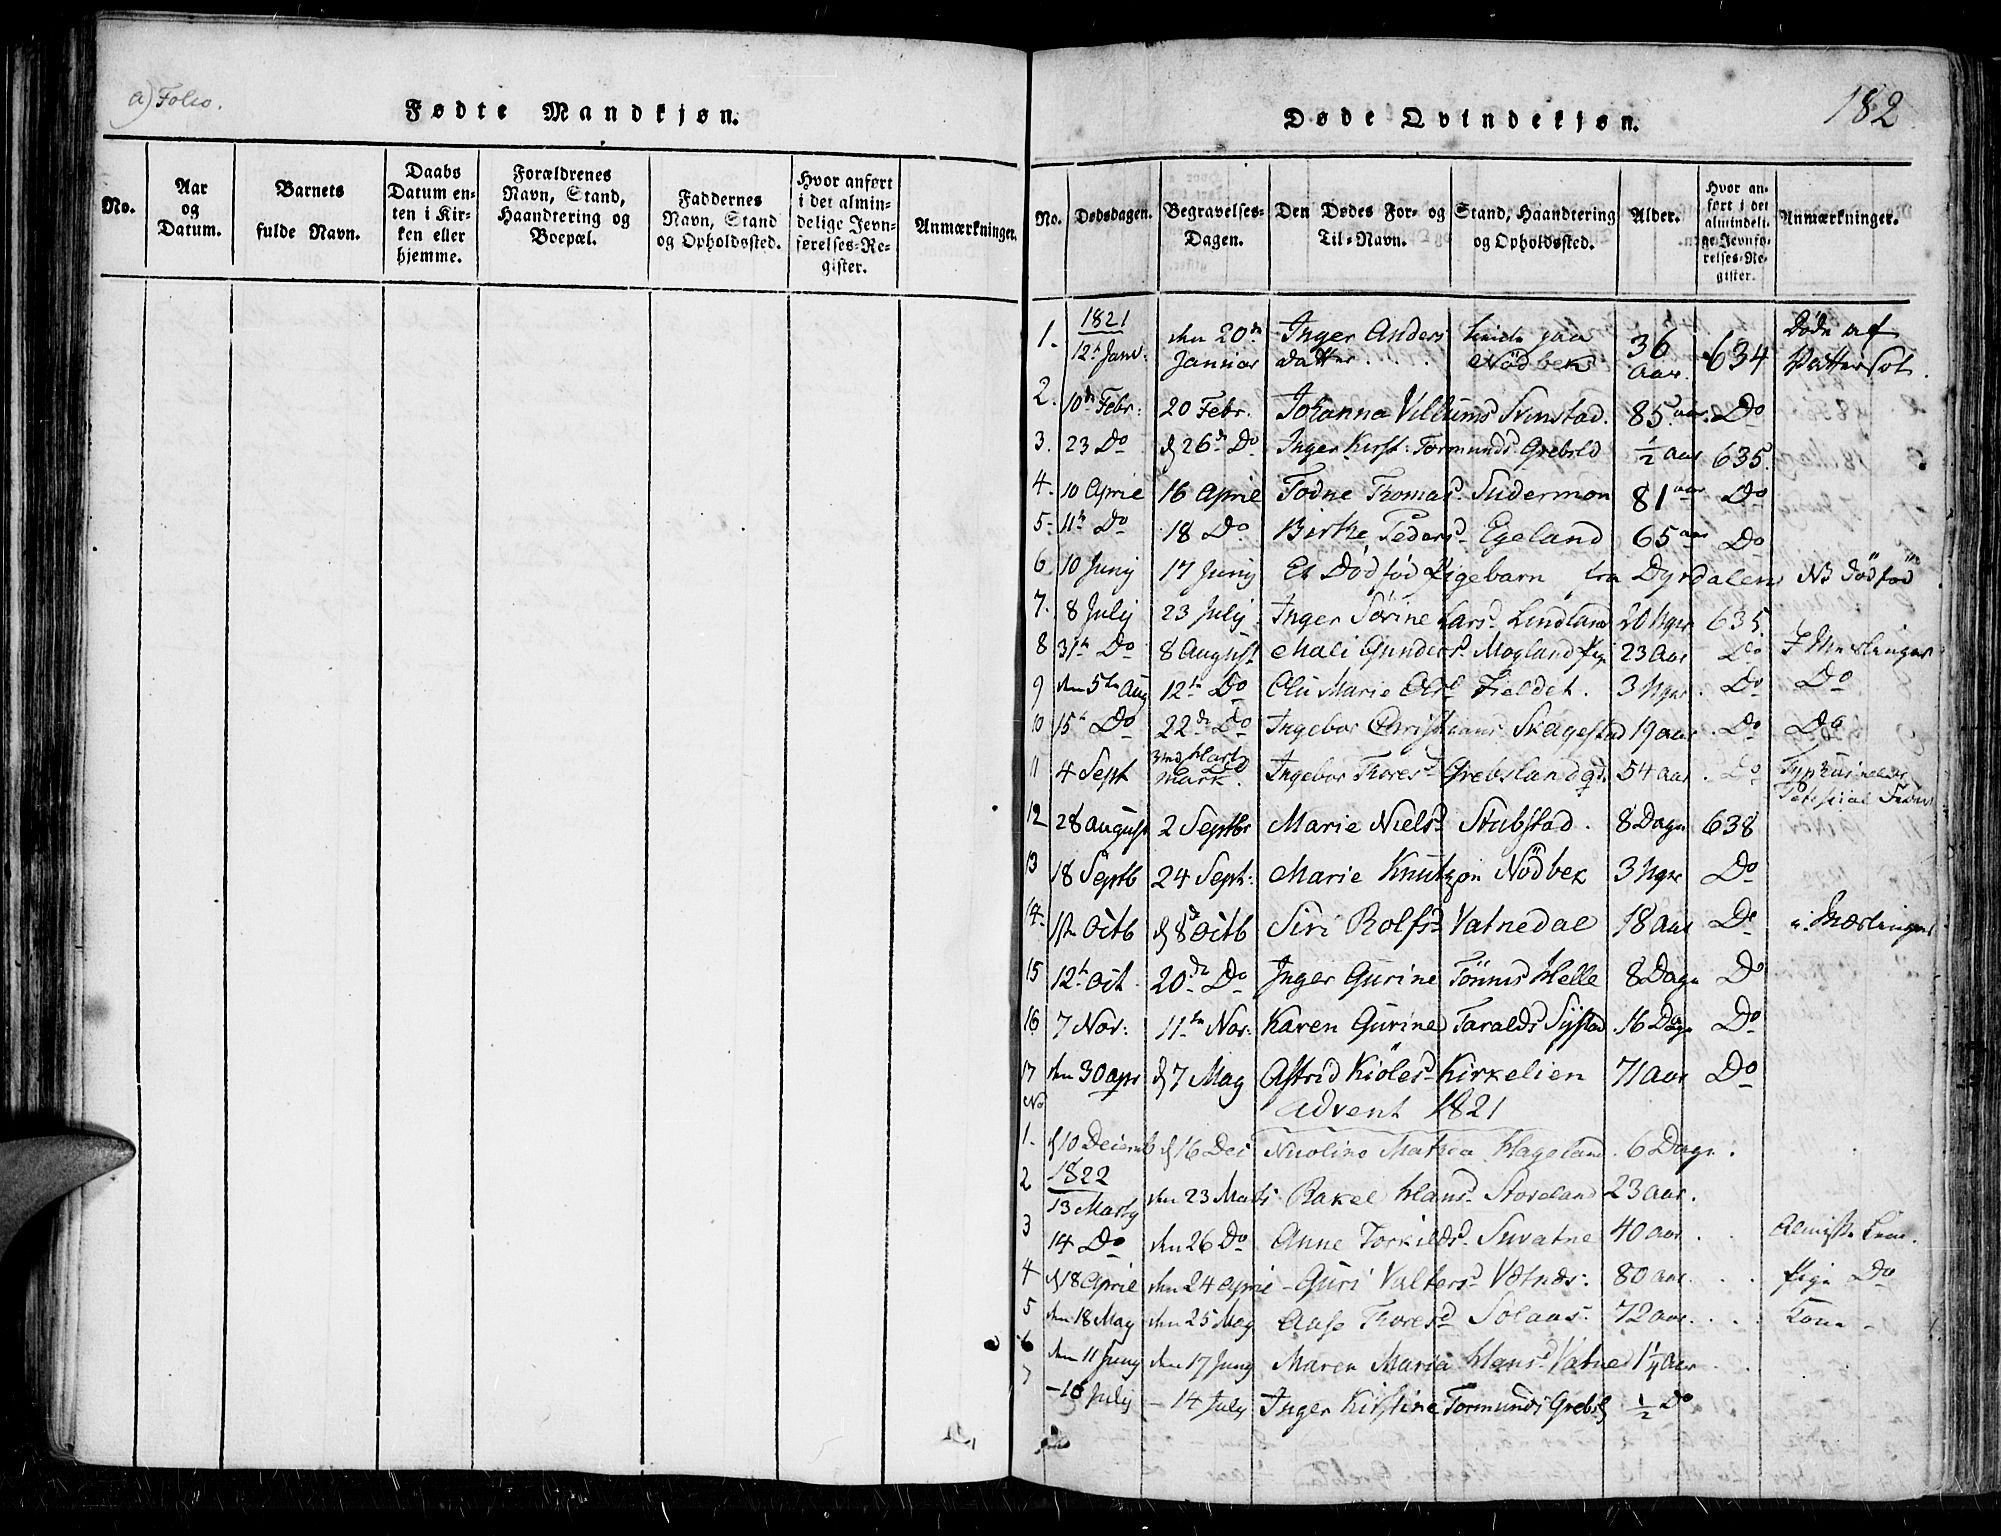 a) Folio.
Fødte Mandkjøn.
No.
Aar og Datum.
Barnets fulde Navn.
Daabs Datum enten i Kirken eller hjemme.
Forældrenes Navn, Stand, Haandtering og Boepæl.
Faddernes Navn, Stand og Opholdssted.
Hvor anført i det almindelige Jevnførelses-Register.
Anmærkninger.
182
Døde Qvindekjøn.
No.
Dødsdagen.
Begravelses-Dagen.
Den Dødes For- og Til-Navn.
Stand, Haandtering og Opholdssted.
Alder.
Hvor anført i det almindelige Jevnførelses-Register.
Anmærkninger.
1821
1. 12te Janv: den 20de Januar Inger Anders datter paa Nödbek 36 aar. 634 Döde af
2. 10de Febr: 20 Febr. Johanna Villums Svinstad. 85 aar. Do
3. 23 Do d 26de Do Inger Kirst: Tormundsd Grebsld ½ aar 635.
4. 10 April 16 April Todne Thomasd Sudermon 81 aar Do
5. 11te Do 18 Do Birthe Pedersd Egeland 65 aar Do
6 10 Junij 17 Junij Et Dödfød Pigebarn fra Dyrdalen NB dödfød
7. 8 Julij 23 Julij Inger Sörine Larsd Lindland 20 Uger 635.
8 31te Do 8 August Mali Gundersd Mogland Pige 23 Aar Do
9 den 5te Aug 12te Do Marie Olsd Fieldet. 3 Uger. Do Do
10 15de Do 22de Do Ingebor Christians Skagestad 19 aar. Do Do
11 4 Sept Ingebor Thoresd Grebsland 54 aar. Do
12 28 august 2 Septbr Marie Nielsd Stubstad. 8 Dage 638
13 18 Septb 24 Sept: Marie Knutzon Nödbek 3 Uger Do
14. 1ste Octb d 8de Octb Siri Rolfsd Vatnedal 18 aar Do
15 12te Oct. 20de Do Inger Gurine Tönnes Helle 8 Dage Do
16 7 Nov: 11te Nov: Karen Gurine Taralds 16 Dage Do
17 den 30 apr d 7 May Astrid Kiölesd Kirkelien 71 aar Do
No Advent 1821
1. d 10 Decemb d 16 Dec Nicoline Mathea Hageland. 6 Dage.
1822
2 13 Marty den 23 Marts Rakel Hansd Stoveland 23 aar.
3 14 Do den 26 Do Anne Torkildsd Suvatne 40 aar.
4 d 18 April den 24 April Guri Valbersd 80 aar. Pige Do
5 den 18 May den 25 May Thoresd Solaas. 72 aar. Kone
6 den 11 Juny den 17 Juny Maren Maria Hansd Vatne 1¼ Aar
7 – 10 July – 14 July Inger Kirstine Tormunds Grebsl ½ Do